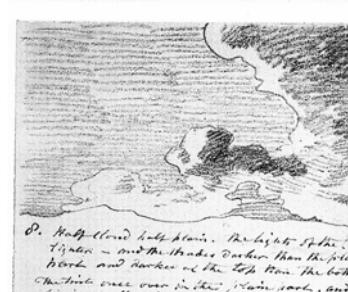 8. Half cloud half plain. The lights of the
lighter – and the shades Darker than the
and darker at the Top than the
the tint once over in the plain part. and